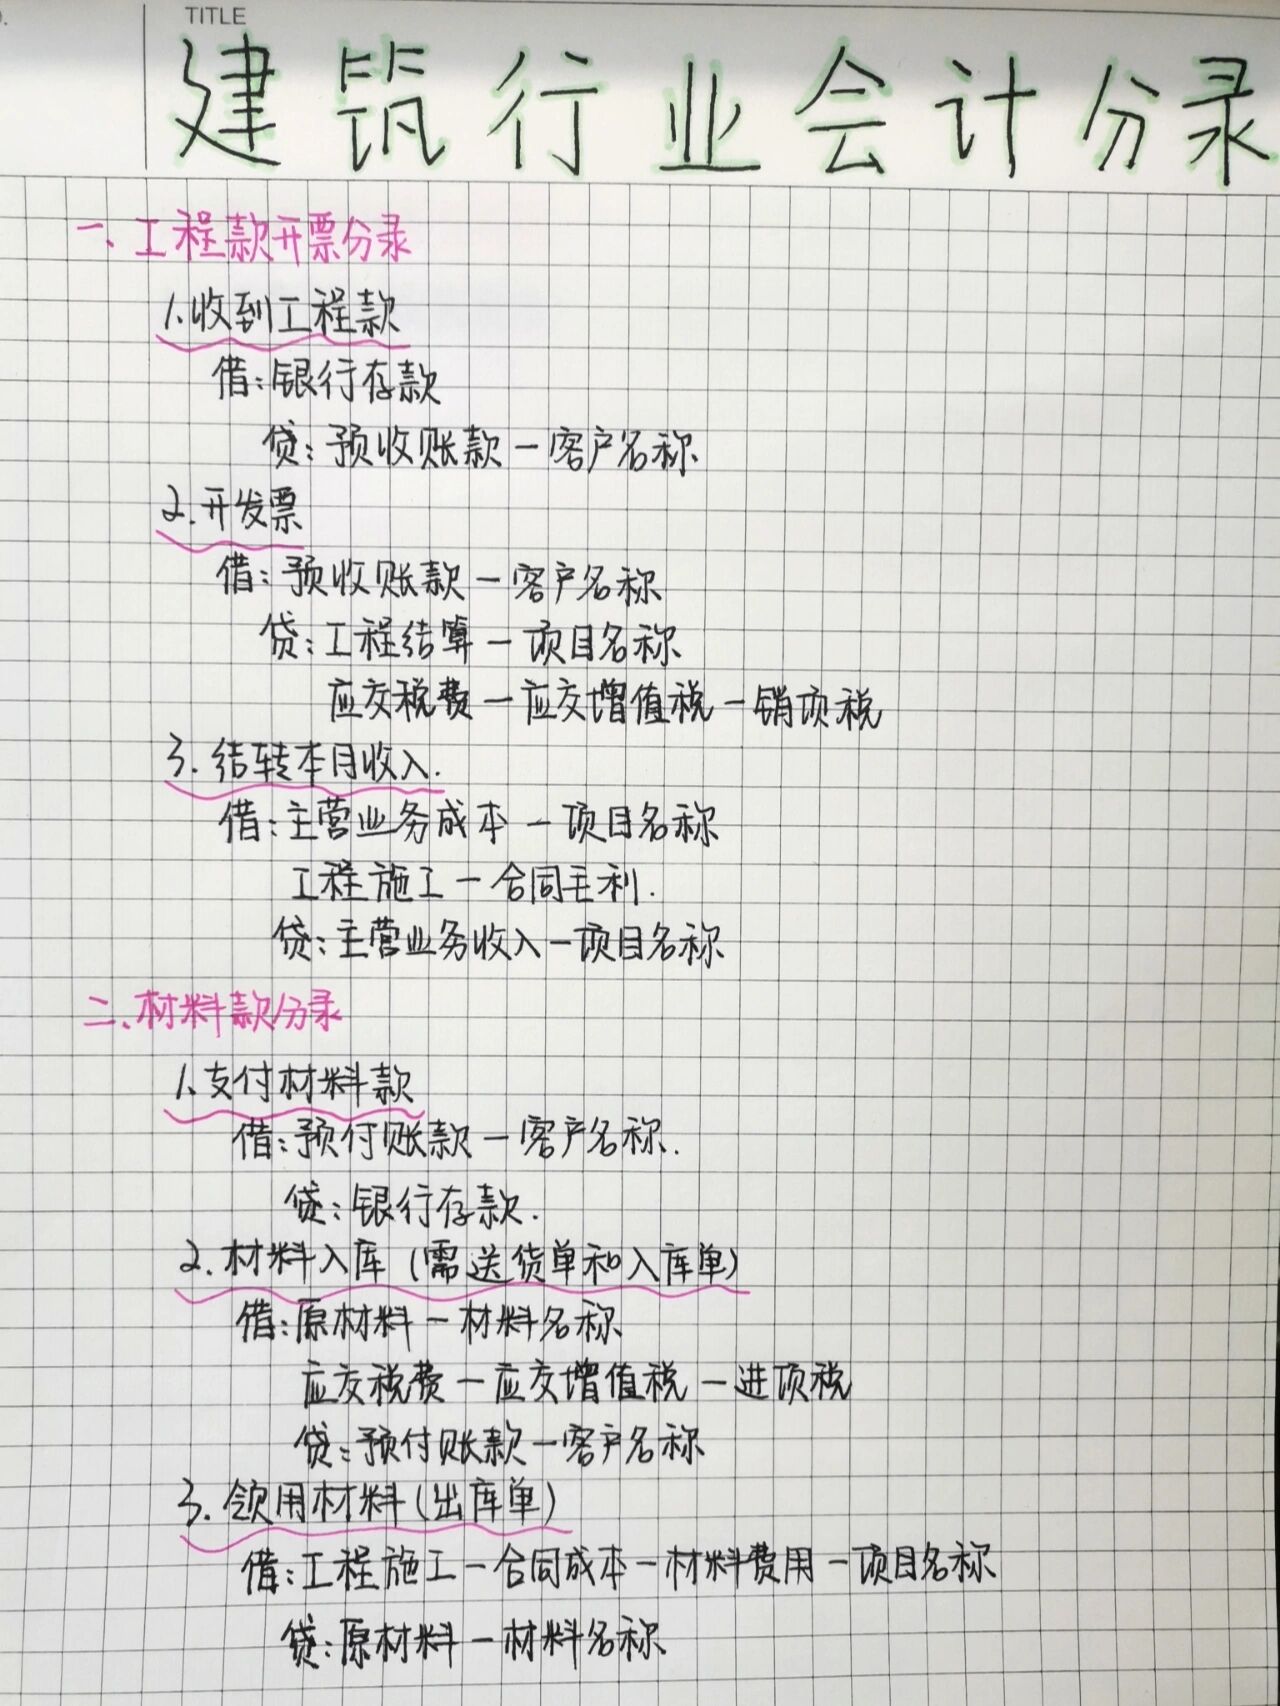 TITLE
建筑行业会计分录
一、工程款开票分录
1.收到工程款
借:银行存款
贷:预收账款－客户名称
2.开发票
借:预收账款－客户名称
贷:工程结算－项目名称
应交税费－应交增值税－销项税
3.结转本月收入.
借:主营业务成本－项目名称
工程施工－合同毛利.
贷:主营业务收入－项目名称
二、材料款分录
1、支付材料款
借:预付账款－客户名称.
贷:银行存款.
2.材料入库(需送货单和入库单)
借:原材料－材料名称
应交税费－应交增值税－进项税
贷:预付账款－客户名称
3.领用材料(出库单)
借:工程施工－合同成本－材料费用－项目名称
贷:原材料－材料名称